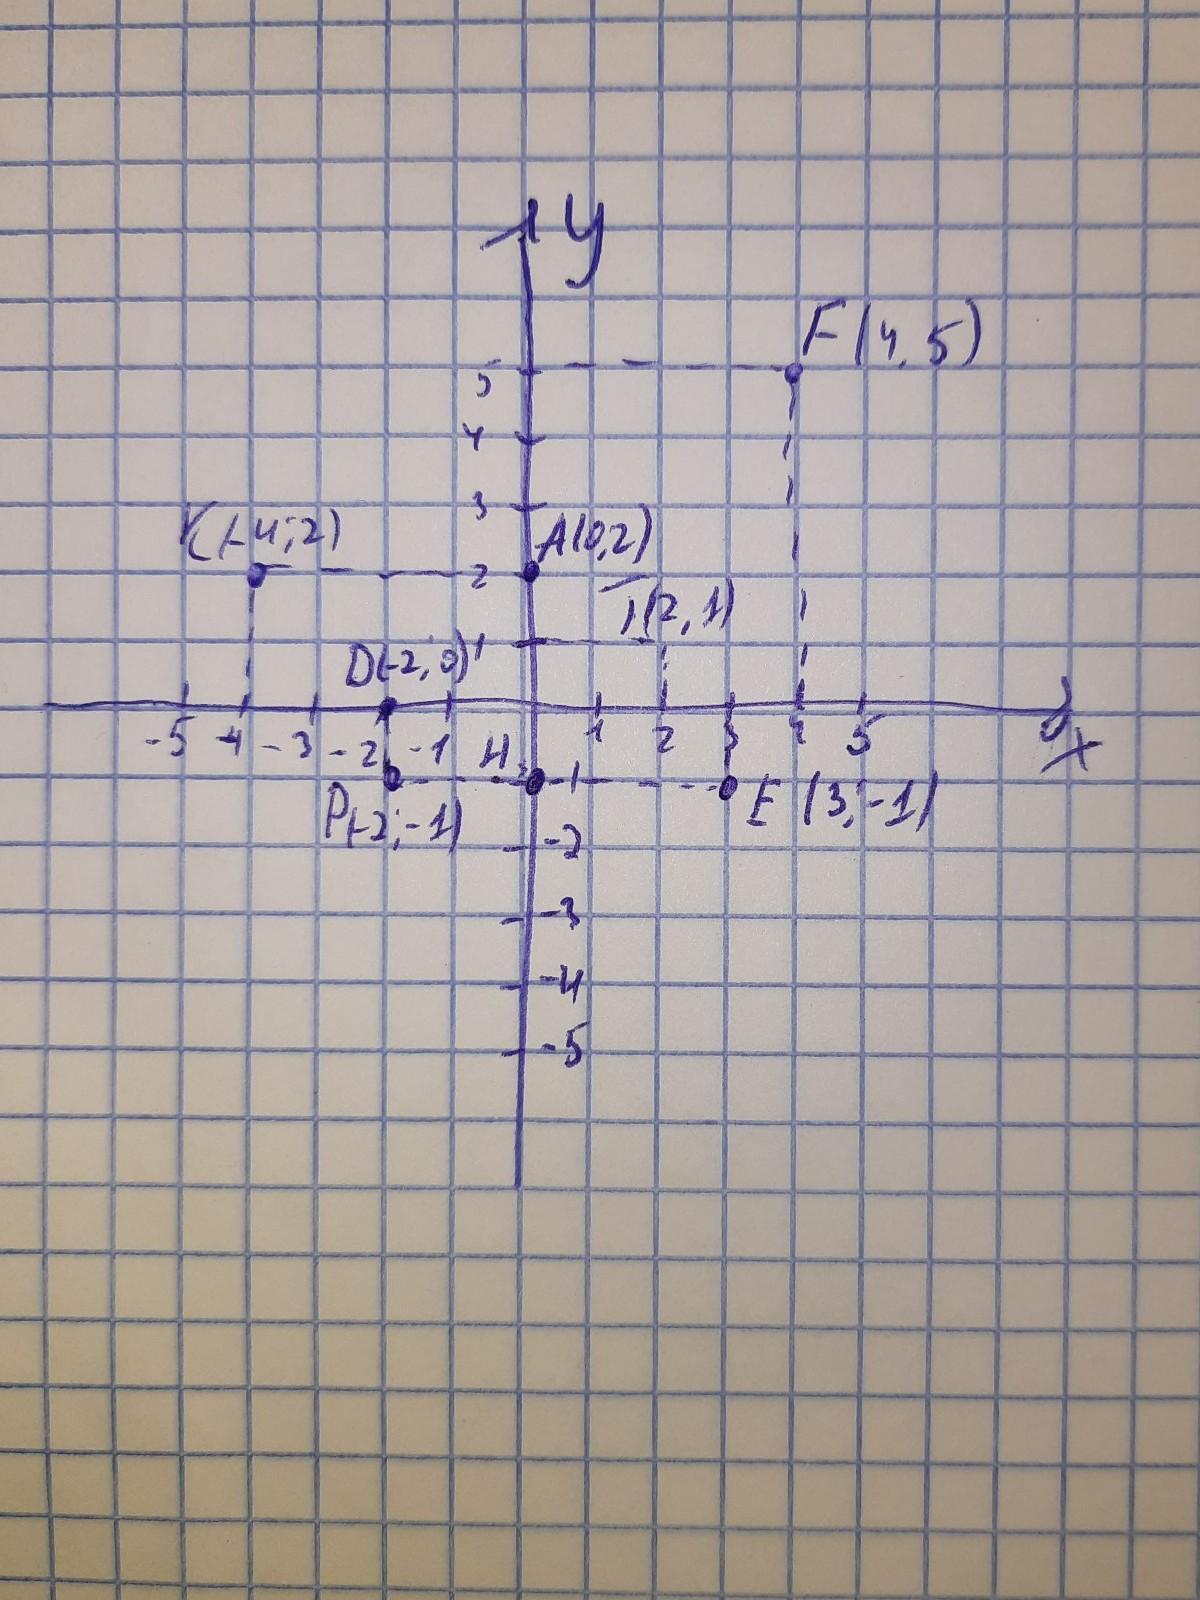 y
F(4,5)
5
4
3
K(-4;2)
A(0,2)
2
T(2,1)
D(-2,0)
1
-5 -4 -3 -2 -1 1 2 3 4 5
x
H
-1
P(-2;-1)
E(3,-1)
-2
-3
-4
-5